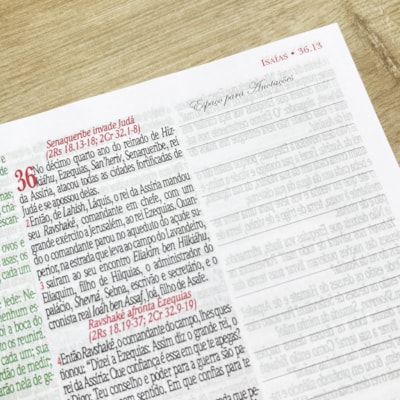 ISAÍAS • 36.13
Espaço para Anotações
Senaqueribe invade Judá
(2Rs 18.13-18; 2Cr 32.1-8)
36 No décimo quarto ano do reinado de Hiz-
kiáhu, Ezequias, San'heriv, Senaqueribe, rei
da Assíria, atacou todas as cidades fortificadas de
Judá e se apossou delas.
2 Então, de Lahish, Láquis, o rei da Assíria mandou
seu Ravshaké, comandante em chefe, com um
grande exército a Jerusalém, ao rei Ezequias. Quan-
do o comandante parou no aqueduto do açude su-
perior, na estrada que leva ao campo do Lavandeiro,
3 saíram ao seu encontro Eliakim ben Hilkiáhu,
Eliaquim, filho de Hilquias, o administrador do
palácio, Shevná, Sebna, escrivão e secretário, e o
cronista real Ioáh ben Assaf, Joá, filho de Asafe.
Ravshaké afronta Ezequias
(2Rs 18.19-37; 2Cr 32.9-19)
4 Então Ravshaké, o comandante do campo, lhes ques-
tionou: "Dizei a Ezequias: Assim diz o grande rei, o
rei da Assíria: Que confiança é essa em que te apegas?
Digo: Teu conselho e poder para a guerra são pa-
Em que confias para te